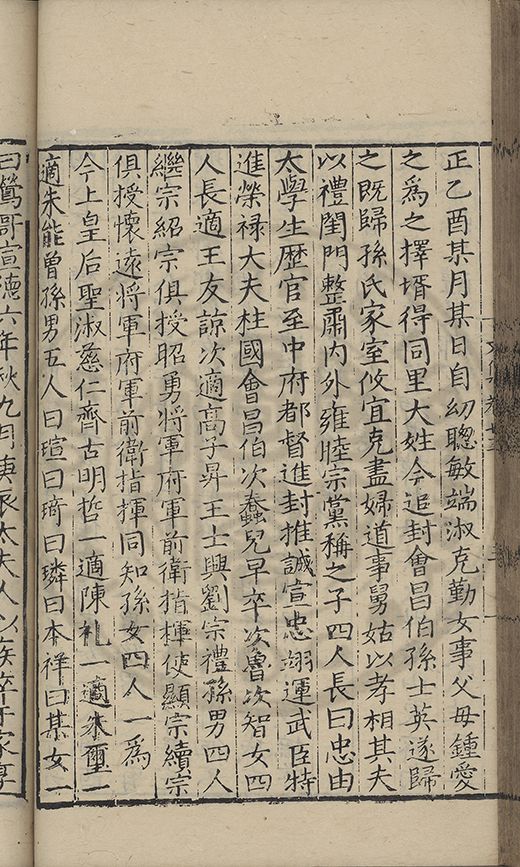 正乙酉某月某日自幼聰敏端淑克勤女事父母鍾愛
之爲之擇壻得同里大姓今追封會昌伯孫士英遂歸
之旣歸孫氏家室攸宜克盡婦道事舅姑以孝相其夫
以禮閨門整肅内外雍睦宗黨稱之子四人長曰忠由
太學生歷官至中府都督進封推誠宣忠翊運武臣特
進榮禄大夫柱國會昌伯次蠢兒早卒次魯次智女四
人長適王友諒次適高子昇王士興劉宗禮孫男四人
繼宗紹宗俱授昭勇將軍府軍前衛指揮使顯宗續宗
俱授懷遠將軍府軍前衛指揮同知孫女四人一爲
今上皇后聖淑慈仁齊古明哲一適陳礼一適朱璽一
適朱能曾孫男五人曰瑄曰琦曰璘曰本祥曰某女一
曰鶯哥宣德六年秋九月庚辰太夫人以疾卒于家享